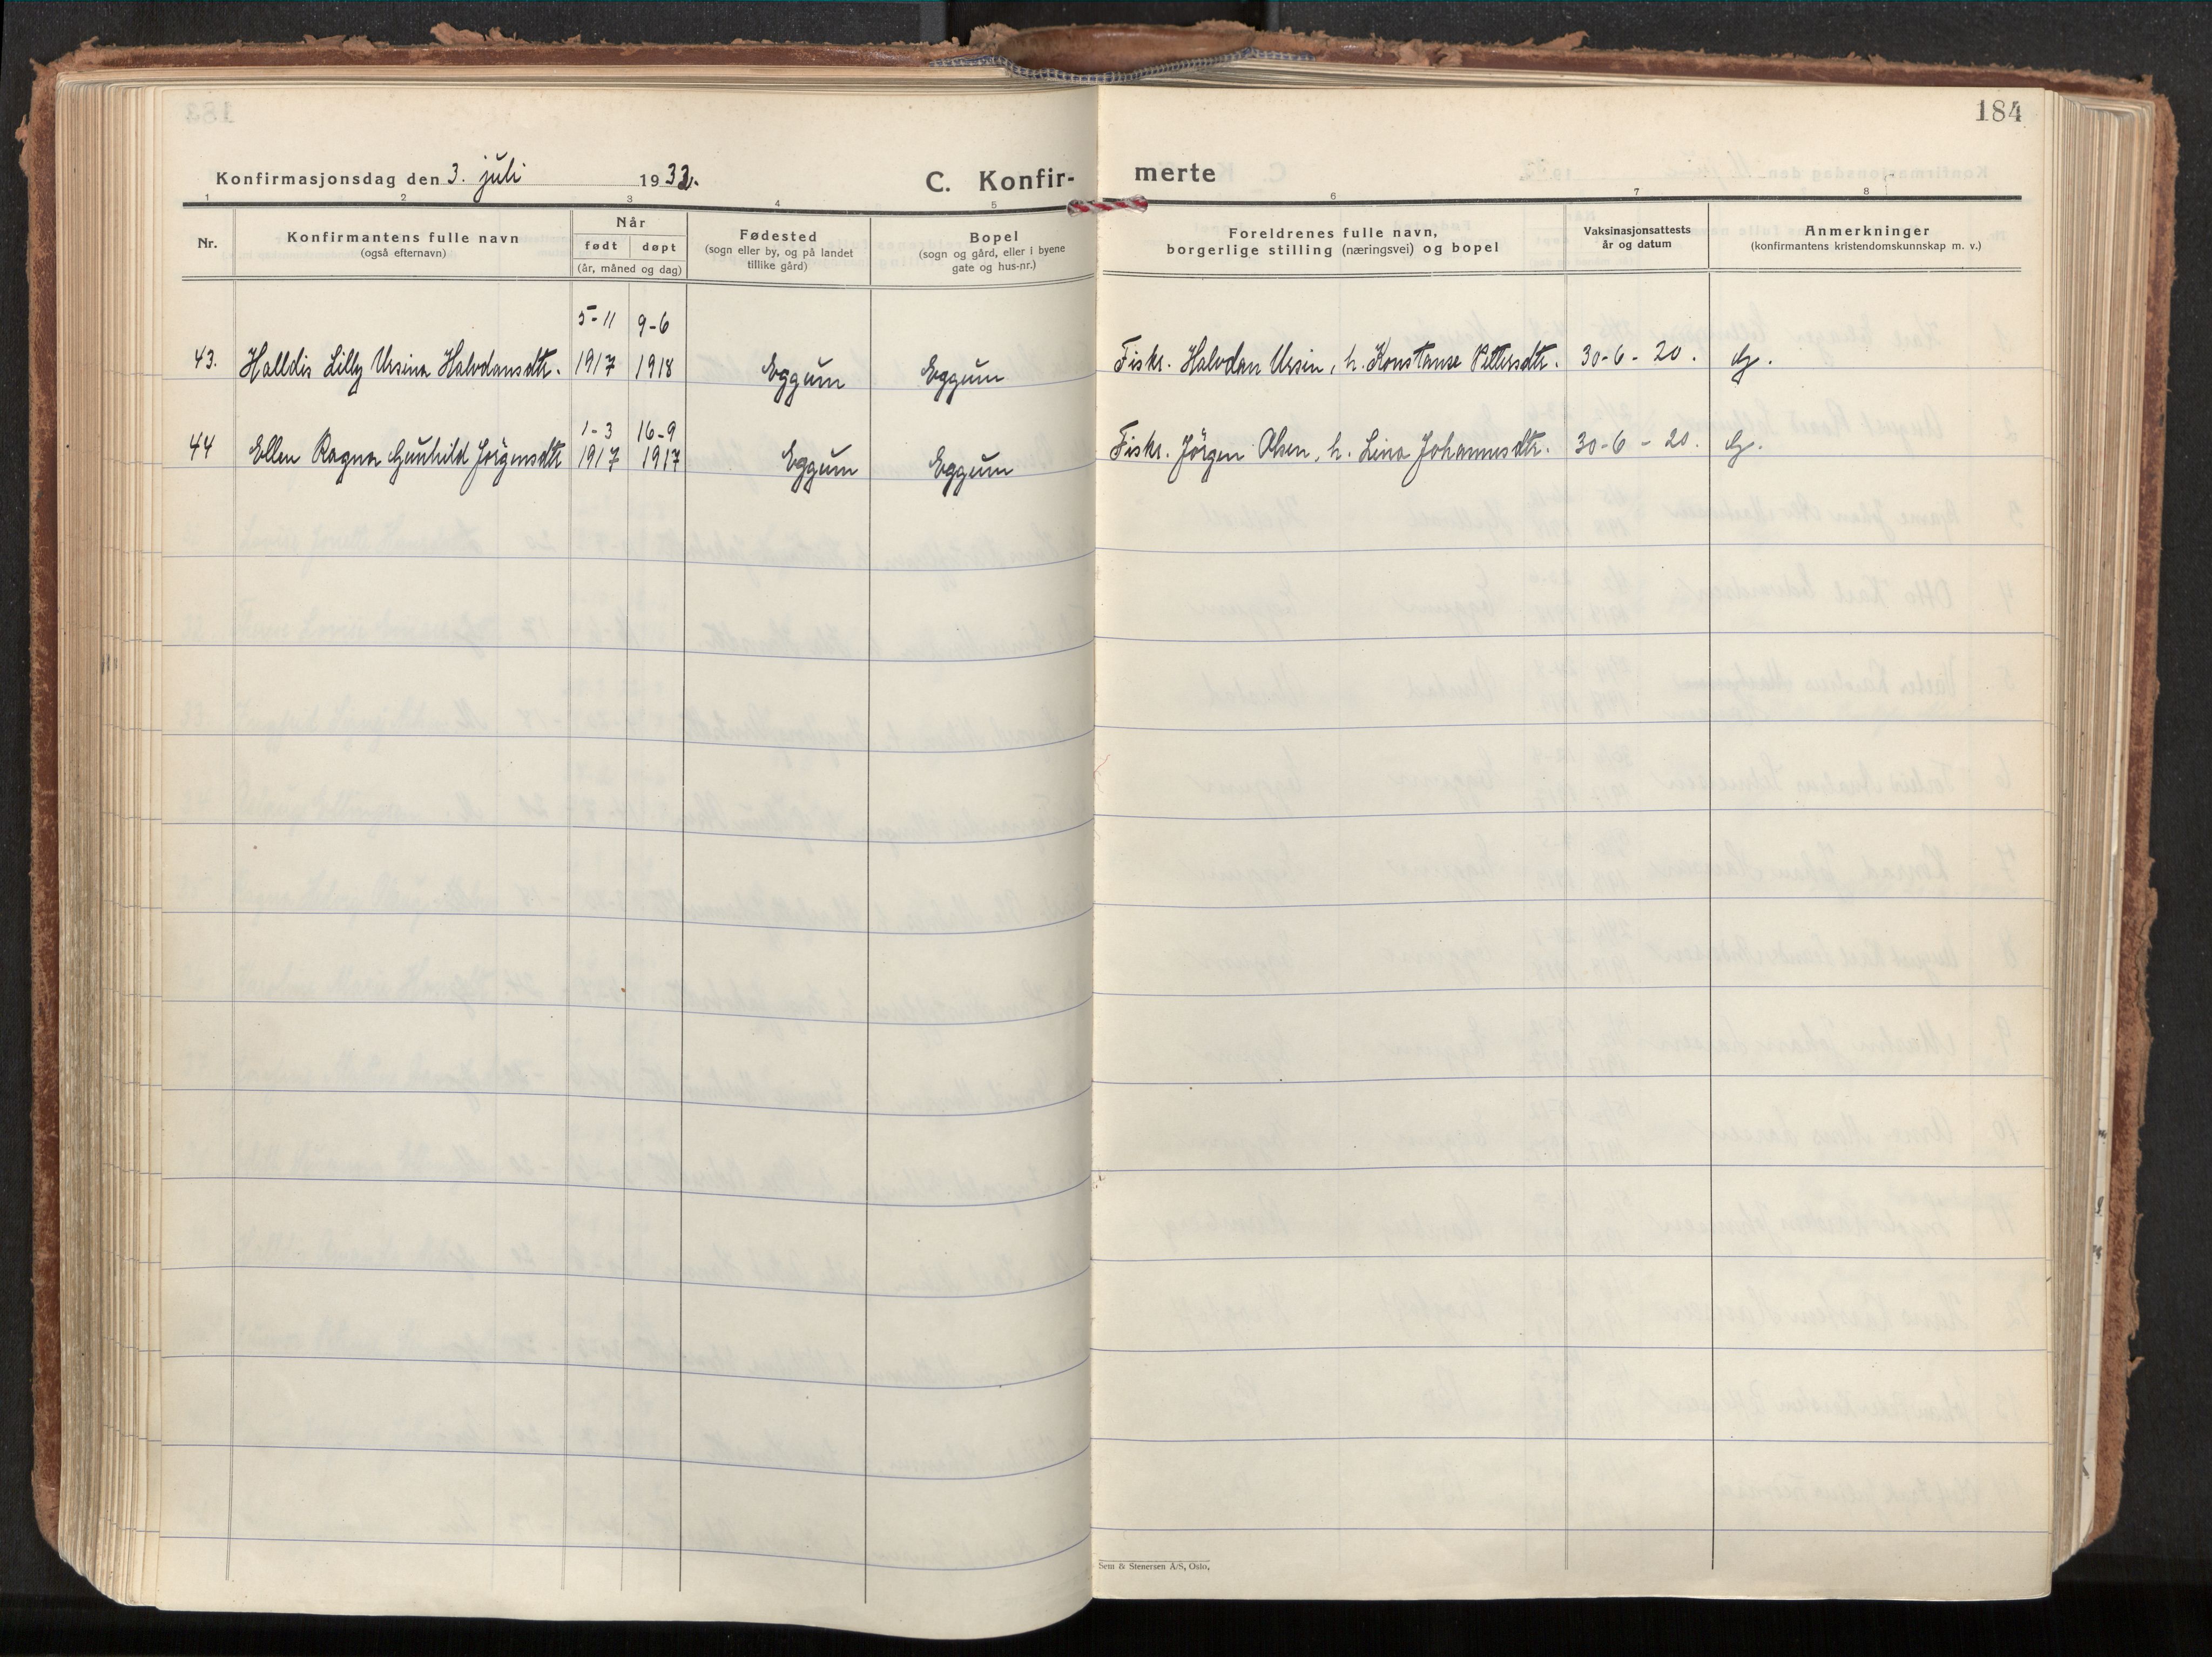 184
Konfirmasjonsdag den 3. juli 1932.
C. Konfir-
merte
1 2 3 4 5 6 7 8
Nr.
Konfirmantens fulle navn
(også efternavn)
Når
født døpt
(år, måned og dag)
Fødested
(sogn eller by, og på landet
tillike gård)
Bopel
(sogn og gård, eller i byene
gate og hus-nr.)
Foreldrenes fulle navn,
borgerlige stilling (næringsvei) og bopel
Vaksinasjonsattests
år og datum
Anmerkninger
(konfirmantens kristendomskunnskap m. v.)
5-11 9-6
43. Halldis Lilly Ursina Halvdansdtr. 1917 1918 Eggum Eggum Fiskr. Halvdan Ursin, h. Konstanse Pettersdtr. 30-6-20. g.
1-3 16-9
44 Ellen Ragna Gunhild Jörgensdtr 1917 1917 Eggum Eggum Fiskr. Jörgen Olsen, h. Lina Johannesdtr. 30-6-20. g.
Sem & Stenersen A/S, Oslo,